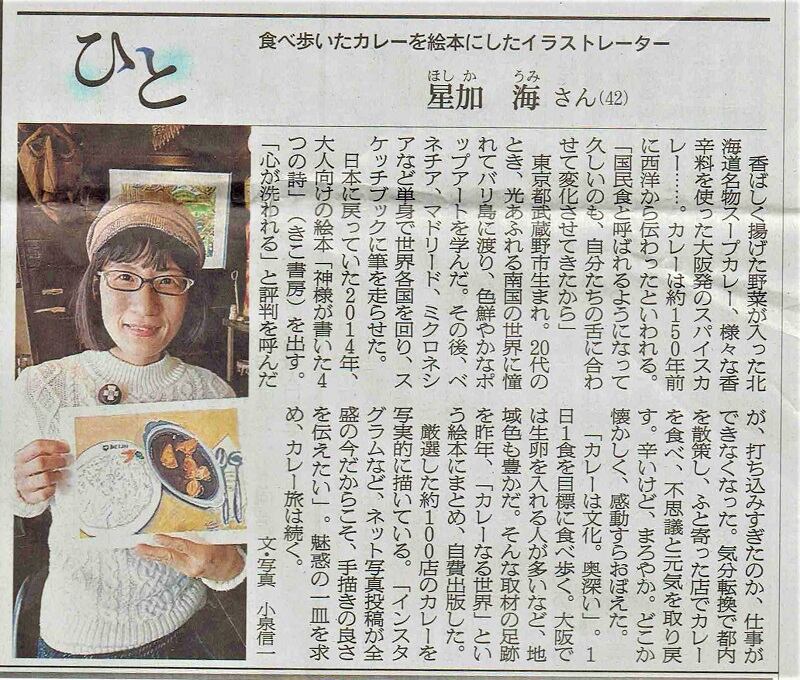 ひと
食べ歩いたカレーを絵本にしたイラストレーター
ほしか うみ
星加 海さん(42)
香ばしく揚げた野菜が入った北
海道名物スープカレー、様々な香
辛料を使った大阪発のスパイスカ
レー……。カレーは約150年前
に西洋から伝わったといわれる。
「国民食と呼ばれるようになって
久しいのも、自分たちの舌に合わ
せて変化させてきたから」
東京都武蔵野市生まれ。20代の
とき、光あふれる南国の世界に憧
れてバリ島に渡り、色鮮やかなポ
ップアートを学んだ。その後、ベ
ネチア、マドリード、ミクロネシ
アなど単身で世界各国を回り、ス
ケッチブックに筆を走らせた。
日本に戻っていた2014年、
大人向けの絵本「神様が書いた4
つの詩」(きこ書房)を出す。
「心が洗われる」と評判を呼んだ
が、打ち込みすぎたのか、仕事が
できなくなった。気分転換で都内
を散策し、ふと寄った店でカレー
を食べ、不思議と元気を取り戻
す。辛いけど、まろやか。どこか
懐かしく、感動すらおぼえた。
「カレーは文化。奥深い」。1
日1食を目標に食べ歩く。大阪で
は生卵を入れる人が多いなど、地
域色も豊かだ。そんな取材の足跡
を昨年、「カレーなる世界」とい
う絵本にまとめ、自費出版した。
厳選した約100店のカレーを
写実的に描いている。「インスタ
グラムなど、ネット写真投稿が全
盛の今だからこそ、手描きの良さ
を伝えたい」。魅惑の一皿を求
め、カレー旅は続く。
文・写真 小泉信一